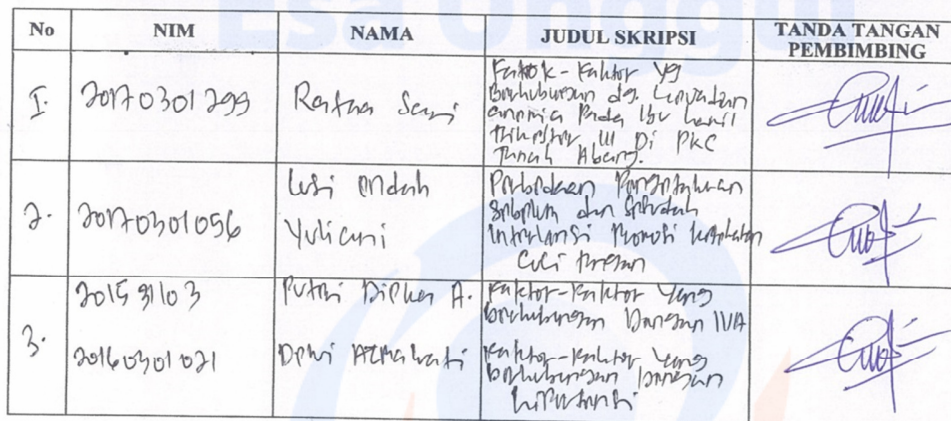 Esa Unggul
No NIM NAMA JUDUL SKRIPSI TANDA TANGAN PEMBIMBING
I. 20170301299 Ratna Sari
Faktor-Faktor Yg
Berhubungan dg. Kejadian
anemia Pada Ibu hamil
Trimester III Di PKC
Tanah Abang.
2. 20170301056 Lusi Indah
Yuliani
Perbedaan Pengetahuan
Sebelum dan Sesudah
Intervensi Promosi kesehatan
Cuci tangan
3. 201531103 Putri A.
Faktor-Faktor Yang
berhubungan Dengan IVA
20160301021 Dewi
Faktor-Faktor Yang
berhubungan Dengan